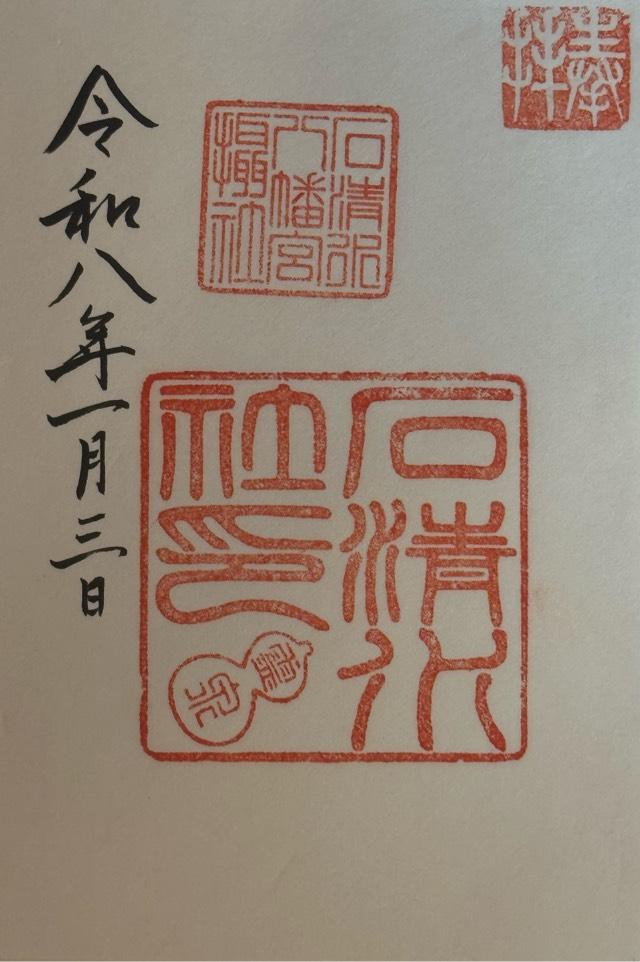 奉拝
石清水
八幡宮
摂社
石清水
社印
霊泉
令和八年一月三日